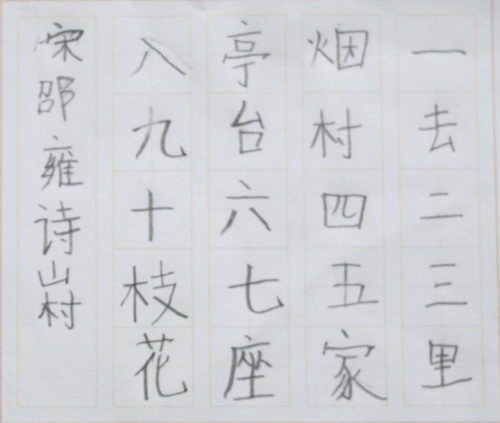 一去二三里
烟村四五家
亭台六七座
八九十枝花
宋邵雍诗山村